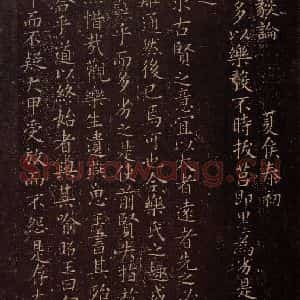 毅論 夏侯泰初
多以樂毅不時拔營即墨為劣是
之
求古賢之意宜以大者遠者先之
難通然後已焉可也今樂氏之趣或
乎而多劣之是使前賢失指
惜哉觀樂生遺燕惠王書其殆
合乎道以終始者與其喻昭王曰伊
甲而不疑大甲受放而不怨是存大
Shufawang.cn